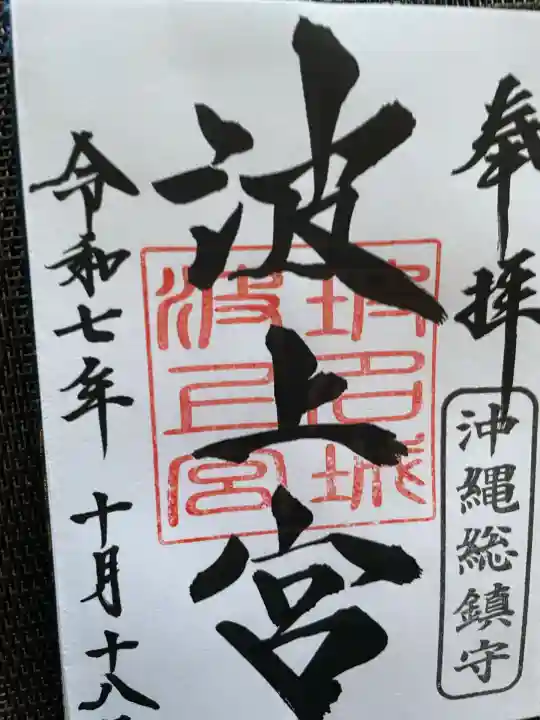 奉拝
沖縄総鎮守
波上宮
波上宮
令和七年 十月 十八